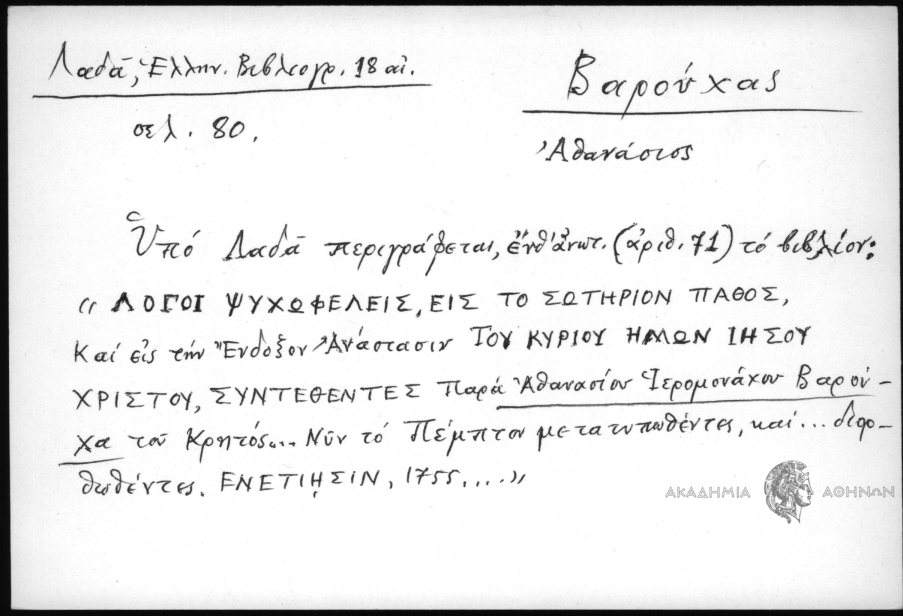 Λαδᾶ, Ἑλλην. Βιβλιογρ. 18 αἰ.
σελ. 80.
Βαρούχας
Ἀθανάσιος
Ὑπό Λαδᾶ περιγράφεται, ἔνθ' ἀνωτ. (ἀριθ. 71) τό βιβλίον:
« ΛΟΓΟΙ ΨΥΧΩΦΕΛΕΙΣ, ΕΙΣ ΤΟ ΣΩΤΗΡΙΟΝ ΠΑΘΟΣ,
Καί εἰς τήν Ἔνδοξον Ἀνάστασιν ΤΟΥ ΚΥΡΙΟΥ ΗΜΩΝ ΙΗΣΟΥ
ΧΡΙΣΤΟΥ, ΣΥΝΤΕΘΕΝΤΕΣ Παρά Ἀθανασίου Ἱερομονάχου Βαρού-
χα τοῦ Κρητός... Νῦν τό Πέμπτον μετατυπωθέντες, καί... διορ-
θωθέντες. ΕΝΕΤΙῌΣΙΝ, 1755, ...»
ΑΚΑΔΗΜΙΑ ΑΘΗΝΩΝ